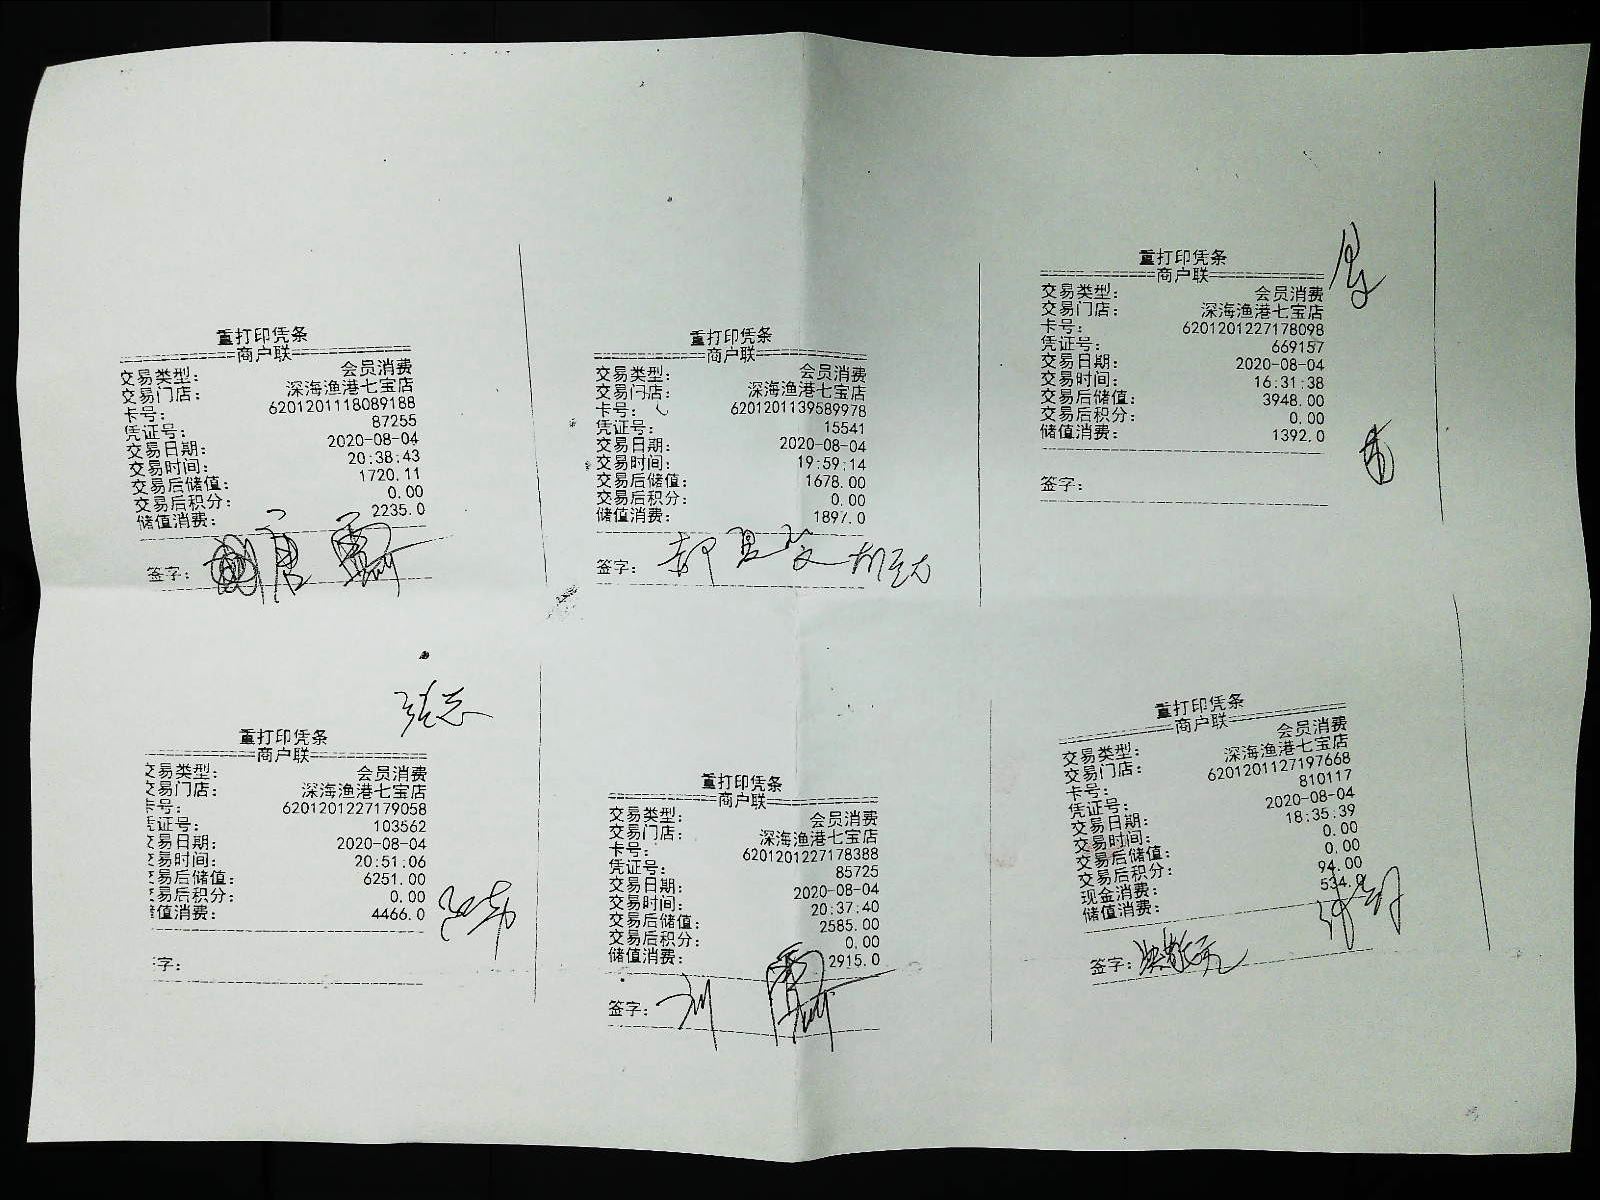 重打印凭条
==========商户联==========
交易类型： 会员消费
交易门店： 深海渔港七宝店
卡号： 6201201118089188
凭证号： 87255
交易日期： 2020-08-04
交易时间： 20:38:43
交易后储值： 1720.11
交易后积分： 0.00
储值消费： 2235.0
签字：
重打印凭条
==========商户联==========
交易类型： 会员消费
交易门店： 深海渔港七宝店
卡号： 6201201139589978
凭证号： 15541
交易日期： 2020-08-04
交易时间： 19:59:14
交易后储值： 1678.00
交易后积分： 0.00
储值消费： 1897.0
签字：
重打印凭条
==========商户联==========
交易类型： 会员消费
交易门店： 深海渔港七宝店
卡号： 6201201227178098
凭证号： 669157
交易日期： 2020-08-04
交易时间： 16:31:38
交易后储值： 3948.00
交易后积分： 0.00
储值消费： 1392.0
签字：
重打印凭条
==========商户联==========
交易类型： 会员消费
交易门店： 深海渔港七宝店
卡号： 6201201227179058
凭证号： 103562
交易日期： 2020-08-04
交易时间： 20:51:06
交易后储值： 6251.00
交易后积分： 0.00
储值消费： 4466.0
字：
重打印凭条
==========商户联==========
交易类型： 会员消费
交易门店： 深海渔港七宝店
卡号： 6201201227178388
凭证号： 85725
交易日期： 2020-08-04
交易时间： 20:37:40
交易后储值： 2585.00
交易后积分： 0.00
储值消费： 2915.0
签字：
重打印凭条
==========商户联==========
交易类型： 会员消费
交易门店： 深海渔港七宝店
卡号： 6201201127197668
凭证号： 810117
交易日期： 2020-08-04
交易时间： 18:35:39
交易后储值： 0.00
交易后积分： 0.00
现金消费： 94.00
储值消费： 534.0
签字：